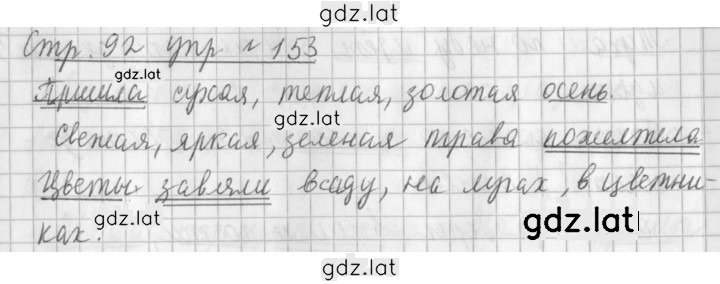 gdz.lat
Стр. 92 упр № 153
gdz.lat
Пришла сухая, теплая, золотая осень.
gdz.lat
Свежая, яркая, зеленая трава пожелтела
gdz.lat
Цветы завяли в саду, на лугах, в цветни-
gdz.lat
gdz.lat
ках.
gdz.lat